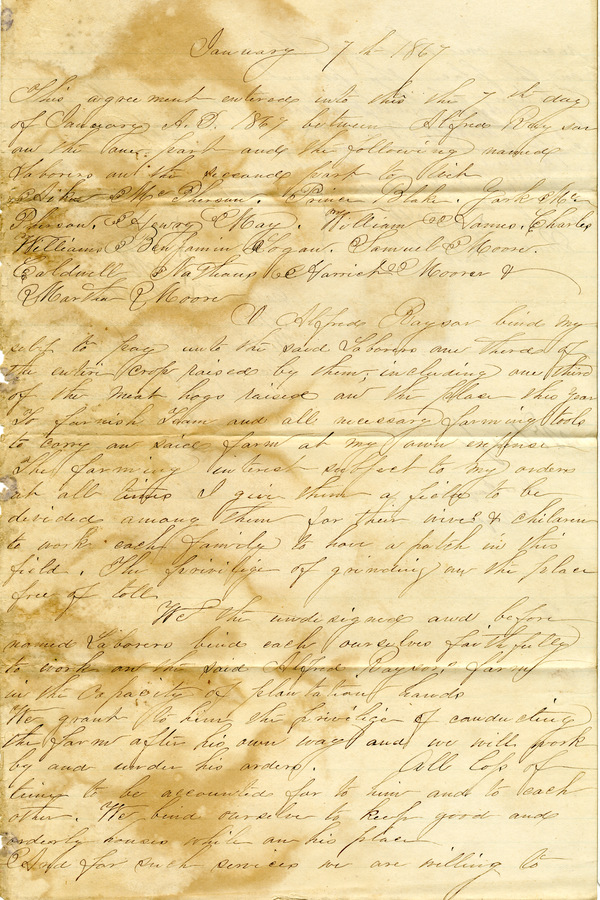 January 7th 1867
This agreement entered into this the 7th day
of January A.D. 1867 between Alfred Raysor
on the one part and the following named
Laborers on the second part to Wit
McPherson. Prince Blake. York Mc
Pherson. Henry May. William James. Charles
Williams Benjamin Logan. Samuel Moore.
Caldwell Nathaus Harrich Moorer &
Martha Moore
I Alfred Raysor bind my
self to pay unto the said Laborers one third of
the entire crop raised by them, including one third
of the meat hogs raised on the place this year
To furnish Team and all necessary farming tools
to carry on said farm at my own expense
The farming interest subject to my orders
at all times I give them a field to be
divided among them for their wives & children
to work each family to have a patch in this
field. The privilige of grinding on the place
free of toll
We the undersigned and before
named Laborers bind each ourselves faithfully
to work on the said Alfred Raysors farm
in the capacity of plantation hands
We grant to him the privilige of conducting
the farm after his own way and we will work
by and under his orders. All loss of
time to be accounted for to him and to each
other. We bind ourselve to keep good and
orderly houses while on his place
And for such services we are willing to